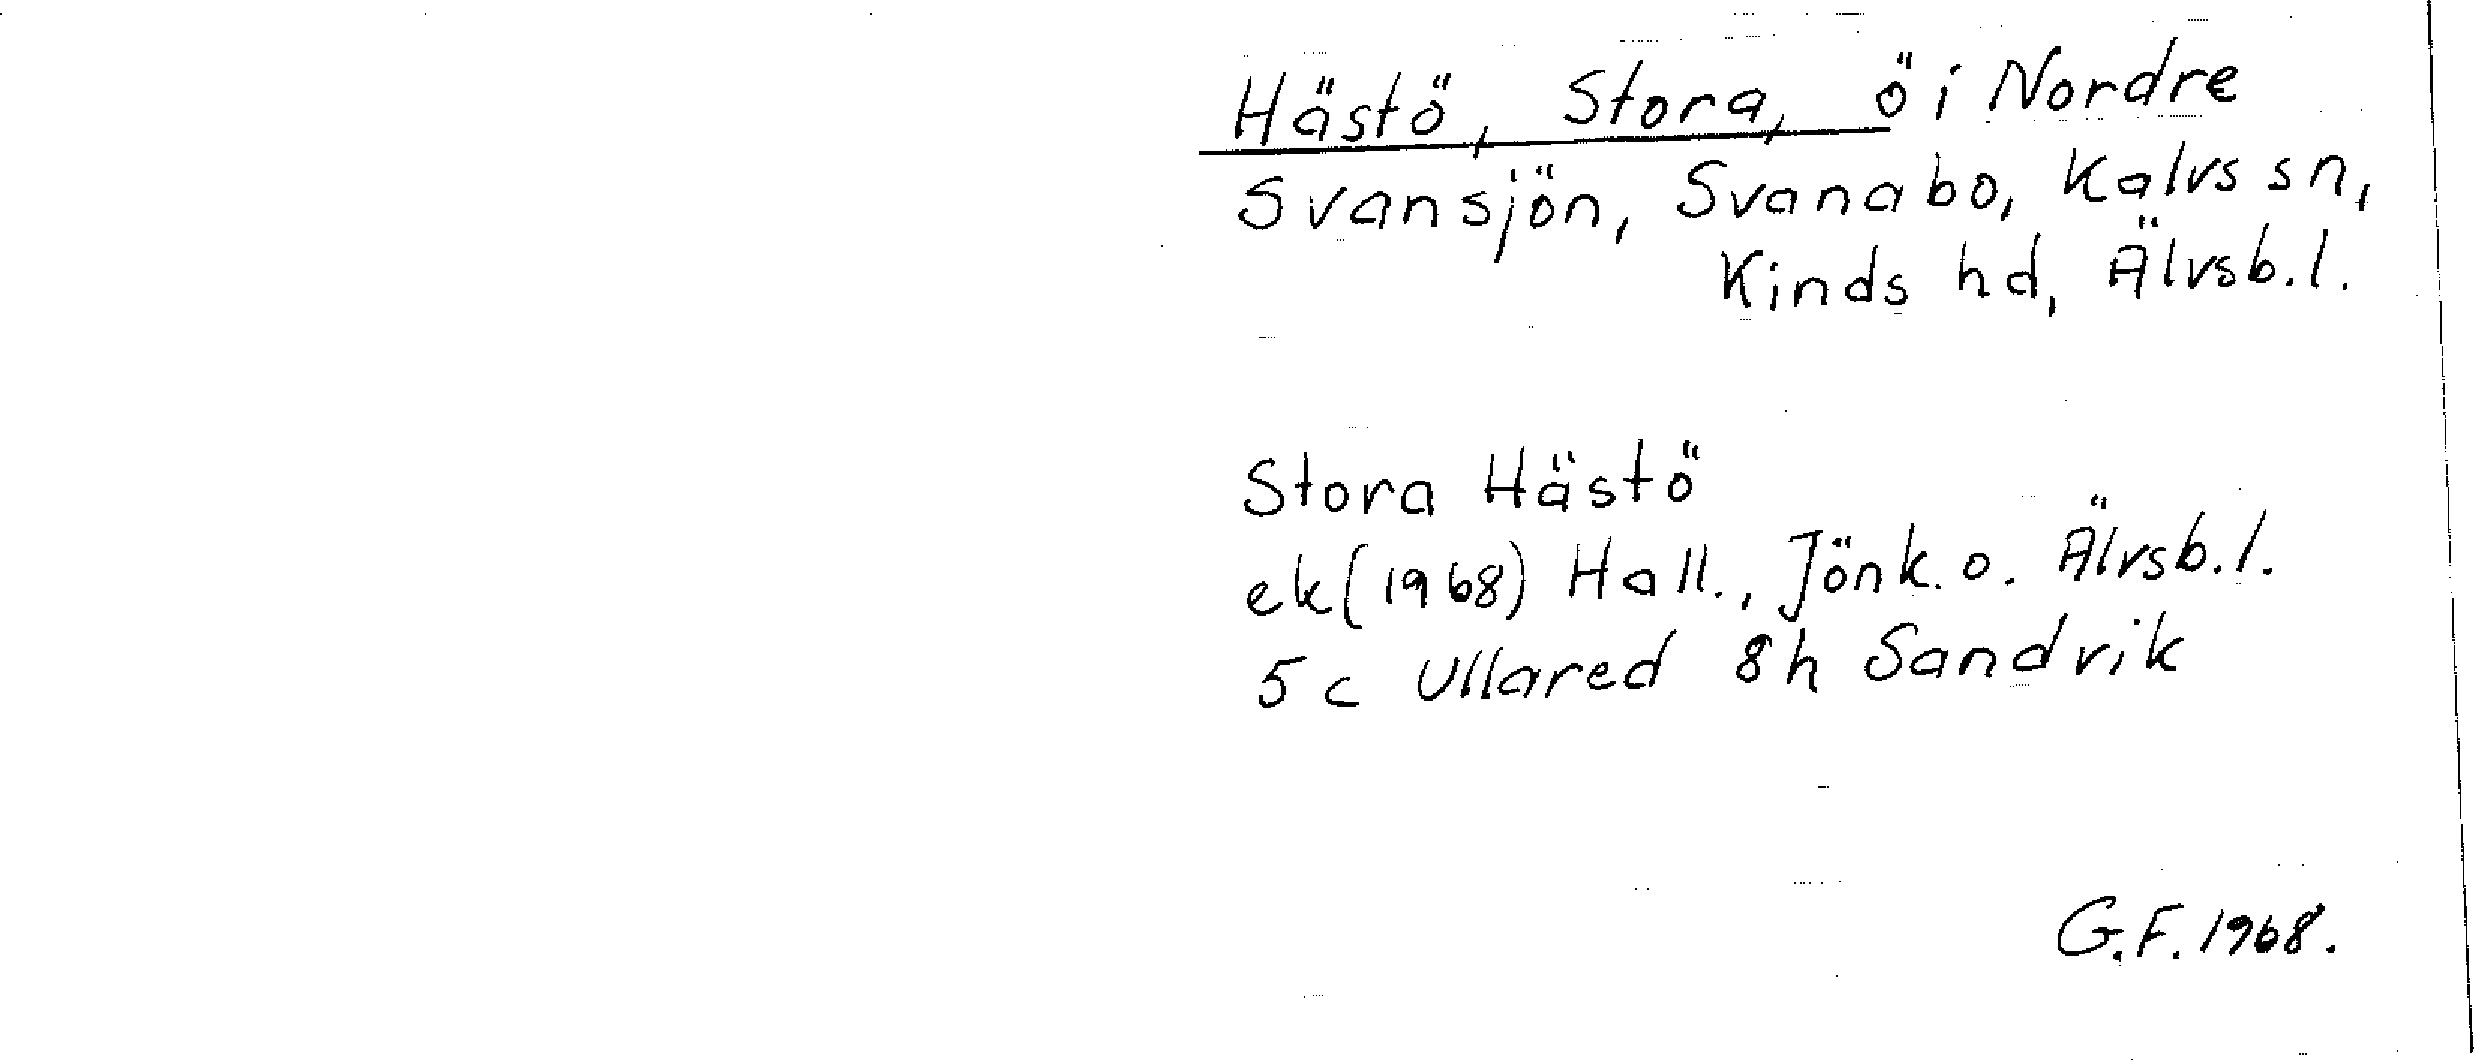 Hästö, Stora, ö i Nordre
Svansjön, Svanabo, Kalvs sn,
Kinds hd, Älvsb.l.
Stora Hästö
ek (1968) Hall., Jönk. o. Älvsb.l.
5 c Ullared 8h Sandvik
G.F. 1968.